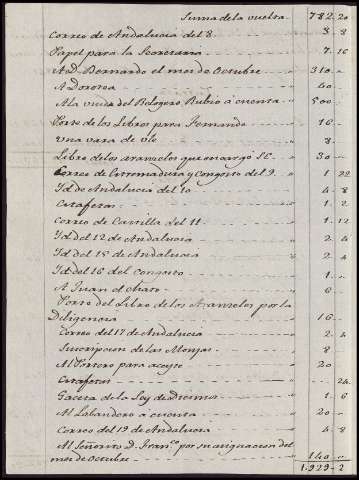 Suma de la vuelta 782.. 20
Correo de Andalucia del 8 3.. 8
Papel para la Secretaria 7.. 16
A D. Bernardo el mes de Octubre 310..
A Dorotea 40..
A la viuda del Relogero Rubio a cuenta 500..
Porte de los Libros para Fernando 16..
Una vara de ule 8..
Libro de los aranceles que encargó SE. 30..
Correo de Estremadura y Congosto del 9. 1.. 22
Yd. de Andalucia del 10 4.. 8
Cataferas 1.. 2
Correo de Castilla del 11 1.. 12
Yd. del 12 de Andalucia 2.. 4
Yd. del 15 de Andalucia 2.. 4
Yd. del 16 del Congosto 1..
A Juan el 6..
Porte del Libro de los Aranceles por la
Diligencia 16..
Correo del 17 de Andalucia 2.. 4
Suscripcion de las Monjas 8..
Al Portero para aceyte 20..
Cataferas 24.
Gaceta de la Ley de Diezmos 1.. 6
Al Labandero a cuenta 20..
Correo del 19 de Andalucia 4.. 8
Al Señorito D. Franco. por su asignacion del
mes de Octubre 140..
1.929.. 2